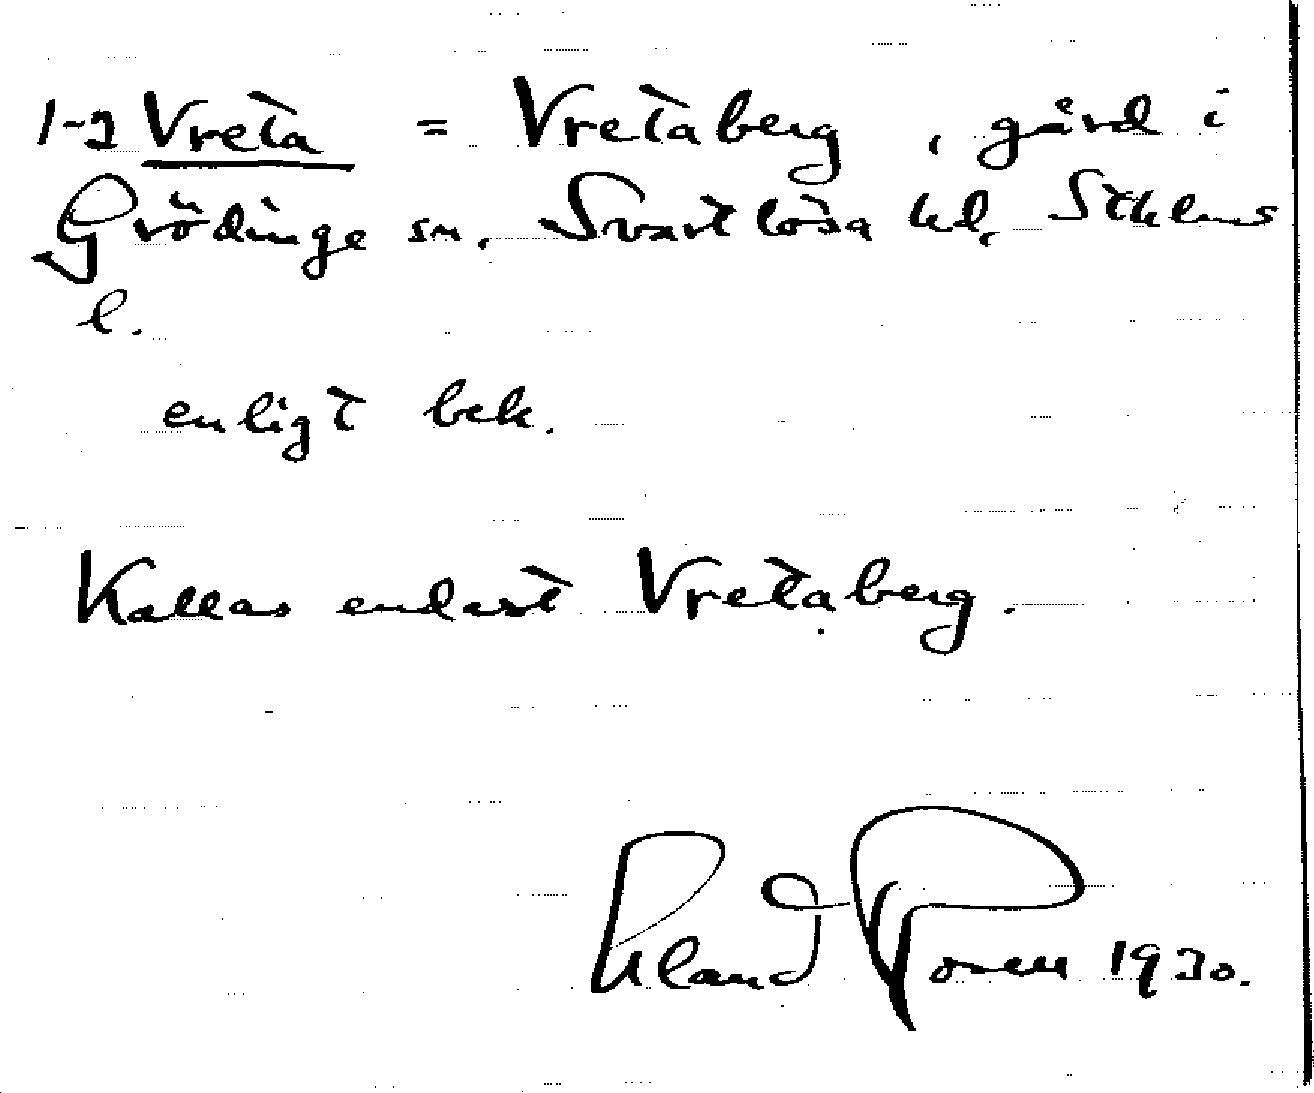 1-2 Vreta = Vretaberg, gård i
Grödinge sn. Svartlösa hd, Sthlms
l.
enligt bek.
Kallas endast Vretaberg.
Erland Rosell 1930.